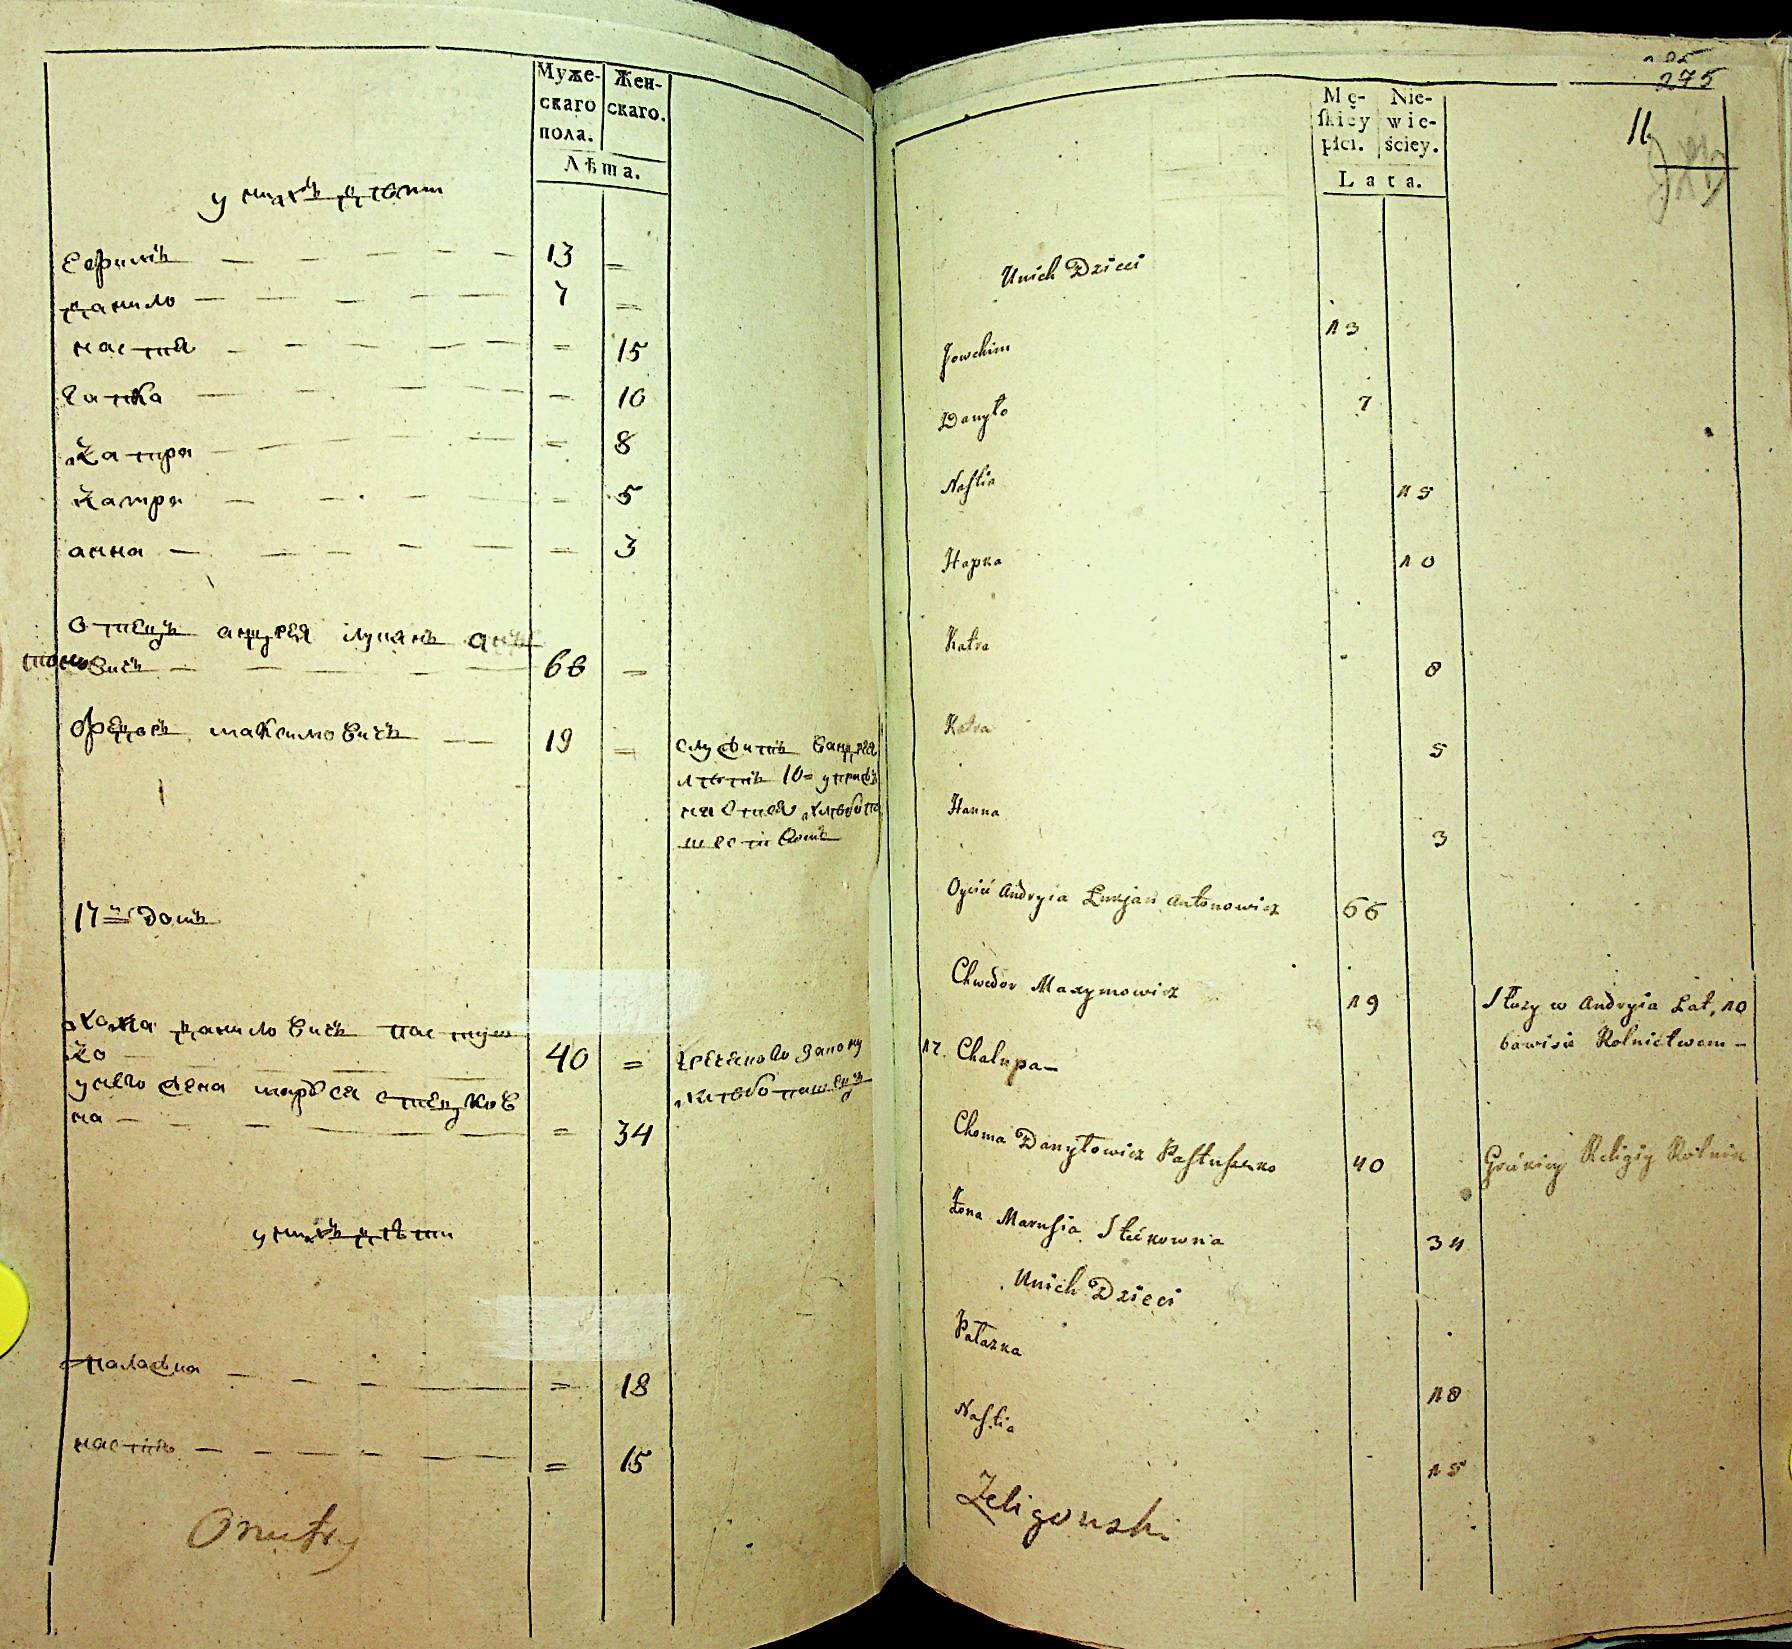 Муже-
скаго
пола.
Жен-
скаго.
Лѣта.
у нихъ дѣти
Ефимъ 13 =
данило 7 =
настя = 15
гапка = 10
Катря = 8
Катря = 5
анна = 3
Отецъ андрея лукянъ анъ
тоновичъ 66 =
Федоръ максимовичъ 19 =
служитъ Вандрея
лѣтъ 10= упражъ
няется хлебопа
шествомъ
17й Домъ
хома даниловичъ пастуш
ко 40 =
греческого закону
хлебопашецъ
унего жена маруся стецков
на = 34
у нихъ дѣти
палажка = 18
настя = 15
275
11
Mę-
ſkiey
płci.
Nie-
wie-
ściey.
Lata.
Unich Dzieci
Jowchim 13
Danyło 7
Naſtia 15
Hapka 10
Katra 8
Katra 5
Hanna 3
Oycić Andryia Łukjan Antonowicz 66
Chwedor Maxymowicz 19
Służy w Andryia Lat, 10
bawisie Rolnictwem –
17. Chałupa –
Choma Danyłowicz Paſtuſzko 40
Gréckiey Religiy Rolnik
Żona Maruſia Stéckowna 34
Unich Dzieci
Pałazka 18
Naſtia 15
Zeligowski